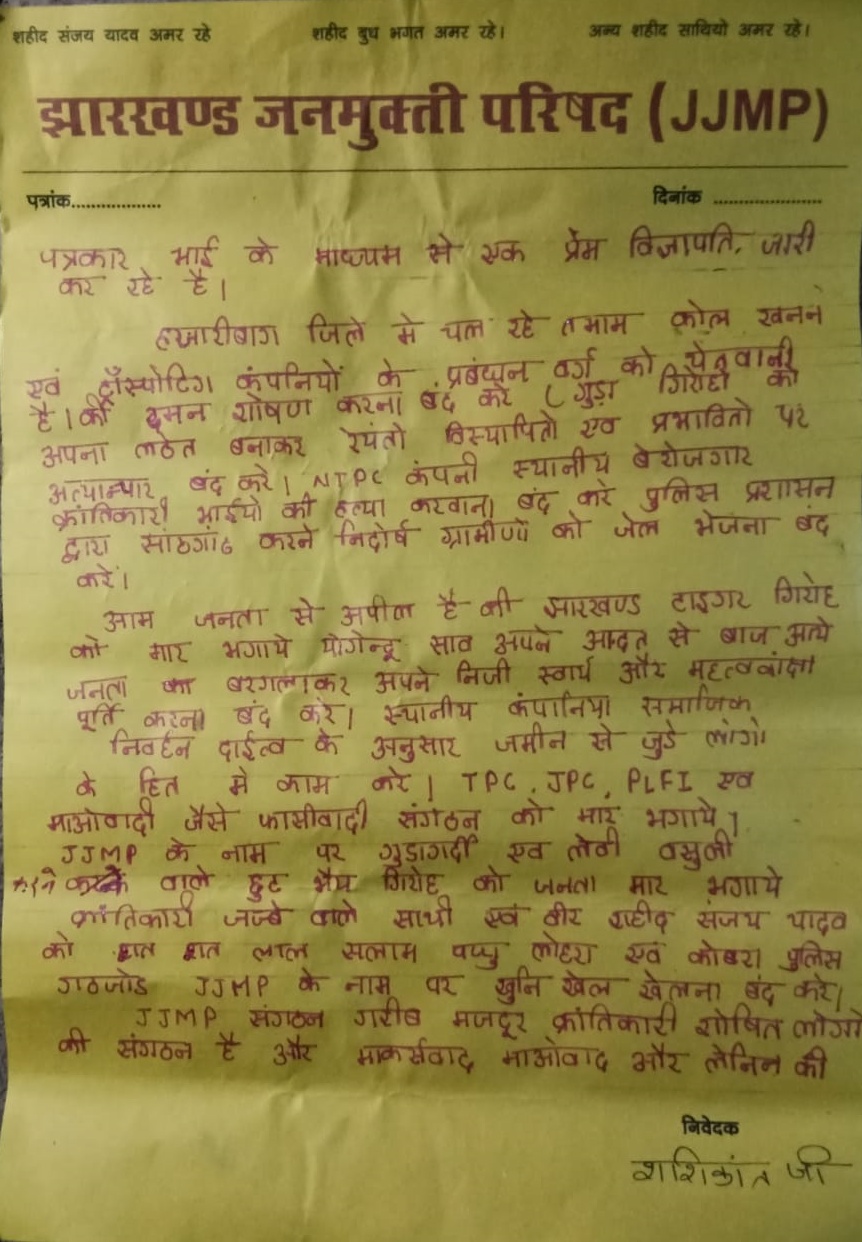 शहीद संजय यादव अमर रहे शहीद बुध भगत अमर रहे। अन्य शहीद साथियो अमर रहे।
झारखण्ड जनमुक्ती परिषद (JJMP)
पत्रांक.................. दिनांक ......................
पत्रकार भाई के माध्यम से एक प्रेम विज्ञापति, जारी
कर रहे है।
हजारीबाग जिले मे चल रहे तमाम कोल खनन
एवं ट्राँस्पोटिंग कंपनियों के प्रबंधन वर्ग को चेतवानी
है। की दमन शोषण करना बंद करे गुंडा गिरोहो को
अपना लठेत बनाकर रेयतो विस्थापितो एव प्रभावितो पर
अत्याचार बंद करे। NTPC कंपनी स्थानीय बेरोजगार
क्रांतिकारी भाईयो की हत्या करवाना बंद करे पुलिस प्रशासन
द्वारा सांठगांठ करने निदोर्ष ग्रामीणों को जेल भेजना बंद
करें।
आम जनता से अपील है की झारखण्ड टाइगर गिरोह
को मार भगाये योगेन्द्र साव अपने आदत से बाज आये
जनता का बरगलाकर अपने निजी स्वार्थ और महत्वकांक्षा
पूर्ति करना बंद करे। स्थानीय कंपानिया समाजिक
निर्वहन दाईत्व के अनुसार जमीन से जुडे लोगो
के हित मे काम करे। TPC, JPC, PLFI एव
माओवादी जैसे फासीवादी संगठन को मार भगाये।
JJMP के नाम पर गुंडागर्दी एव लेवी वसुली
करने वाले छुट भैय गिरोह को जनता मार भगाये
क्रांतिकारी जज्बे वाले साथी एवं वीर शहीद संजय यादव
को शत शत लाल सलाम पप्पु लोहरा एवं कोबरा पुलिस
गठजोड JJMP के नाम पर खुनि खेल खेलना बंद करे।
JJMP संगठन गरीब मजदूर क्रांतिकारी शोषित लोगो
की संगठन है और मार्क्सवाद माओवाद और लेनिन की
निवेदक
शशिकांत जी